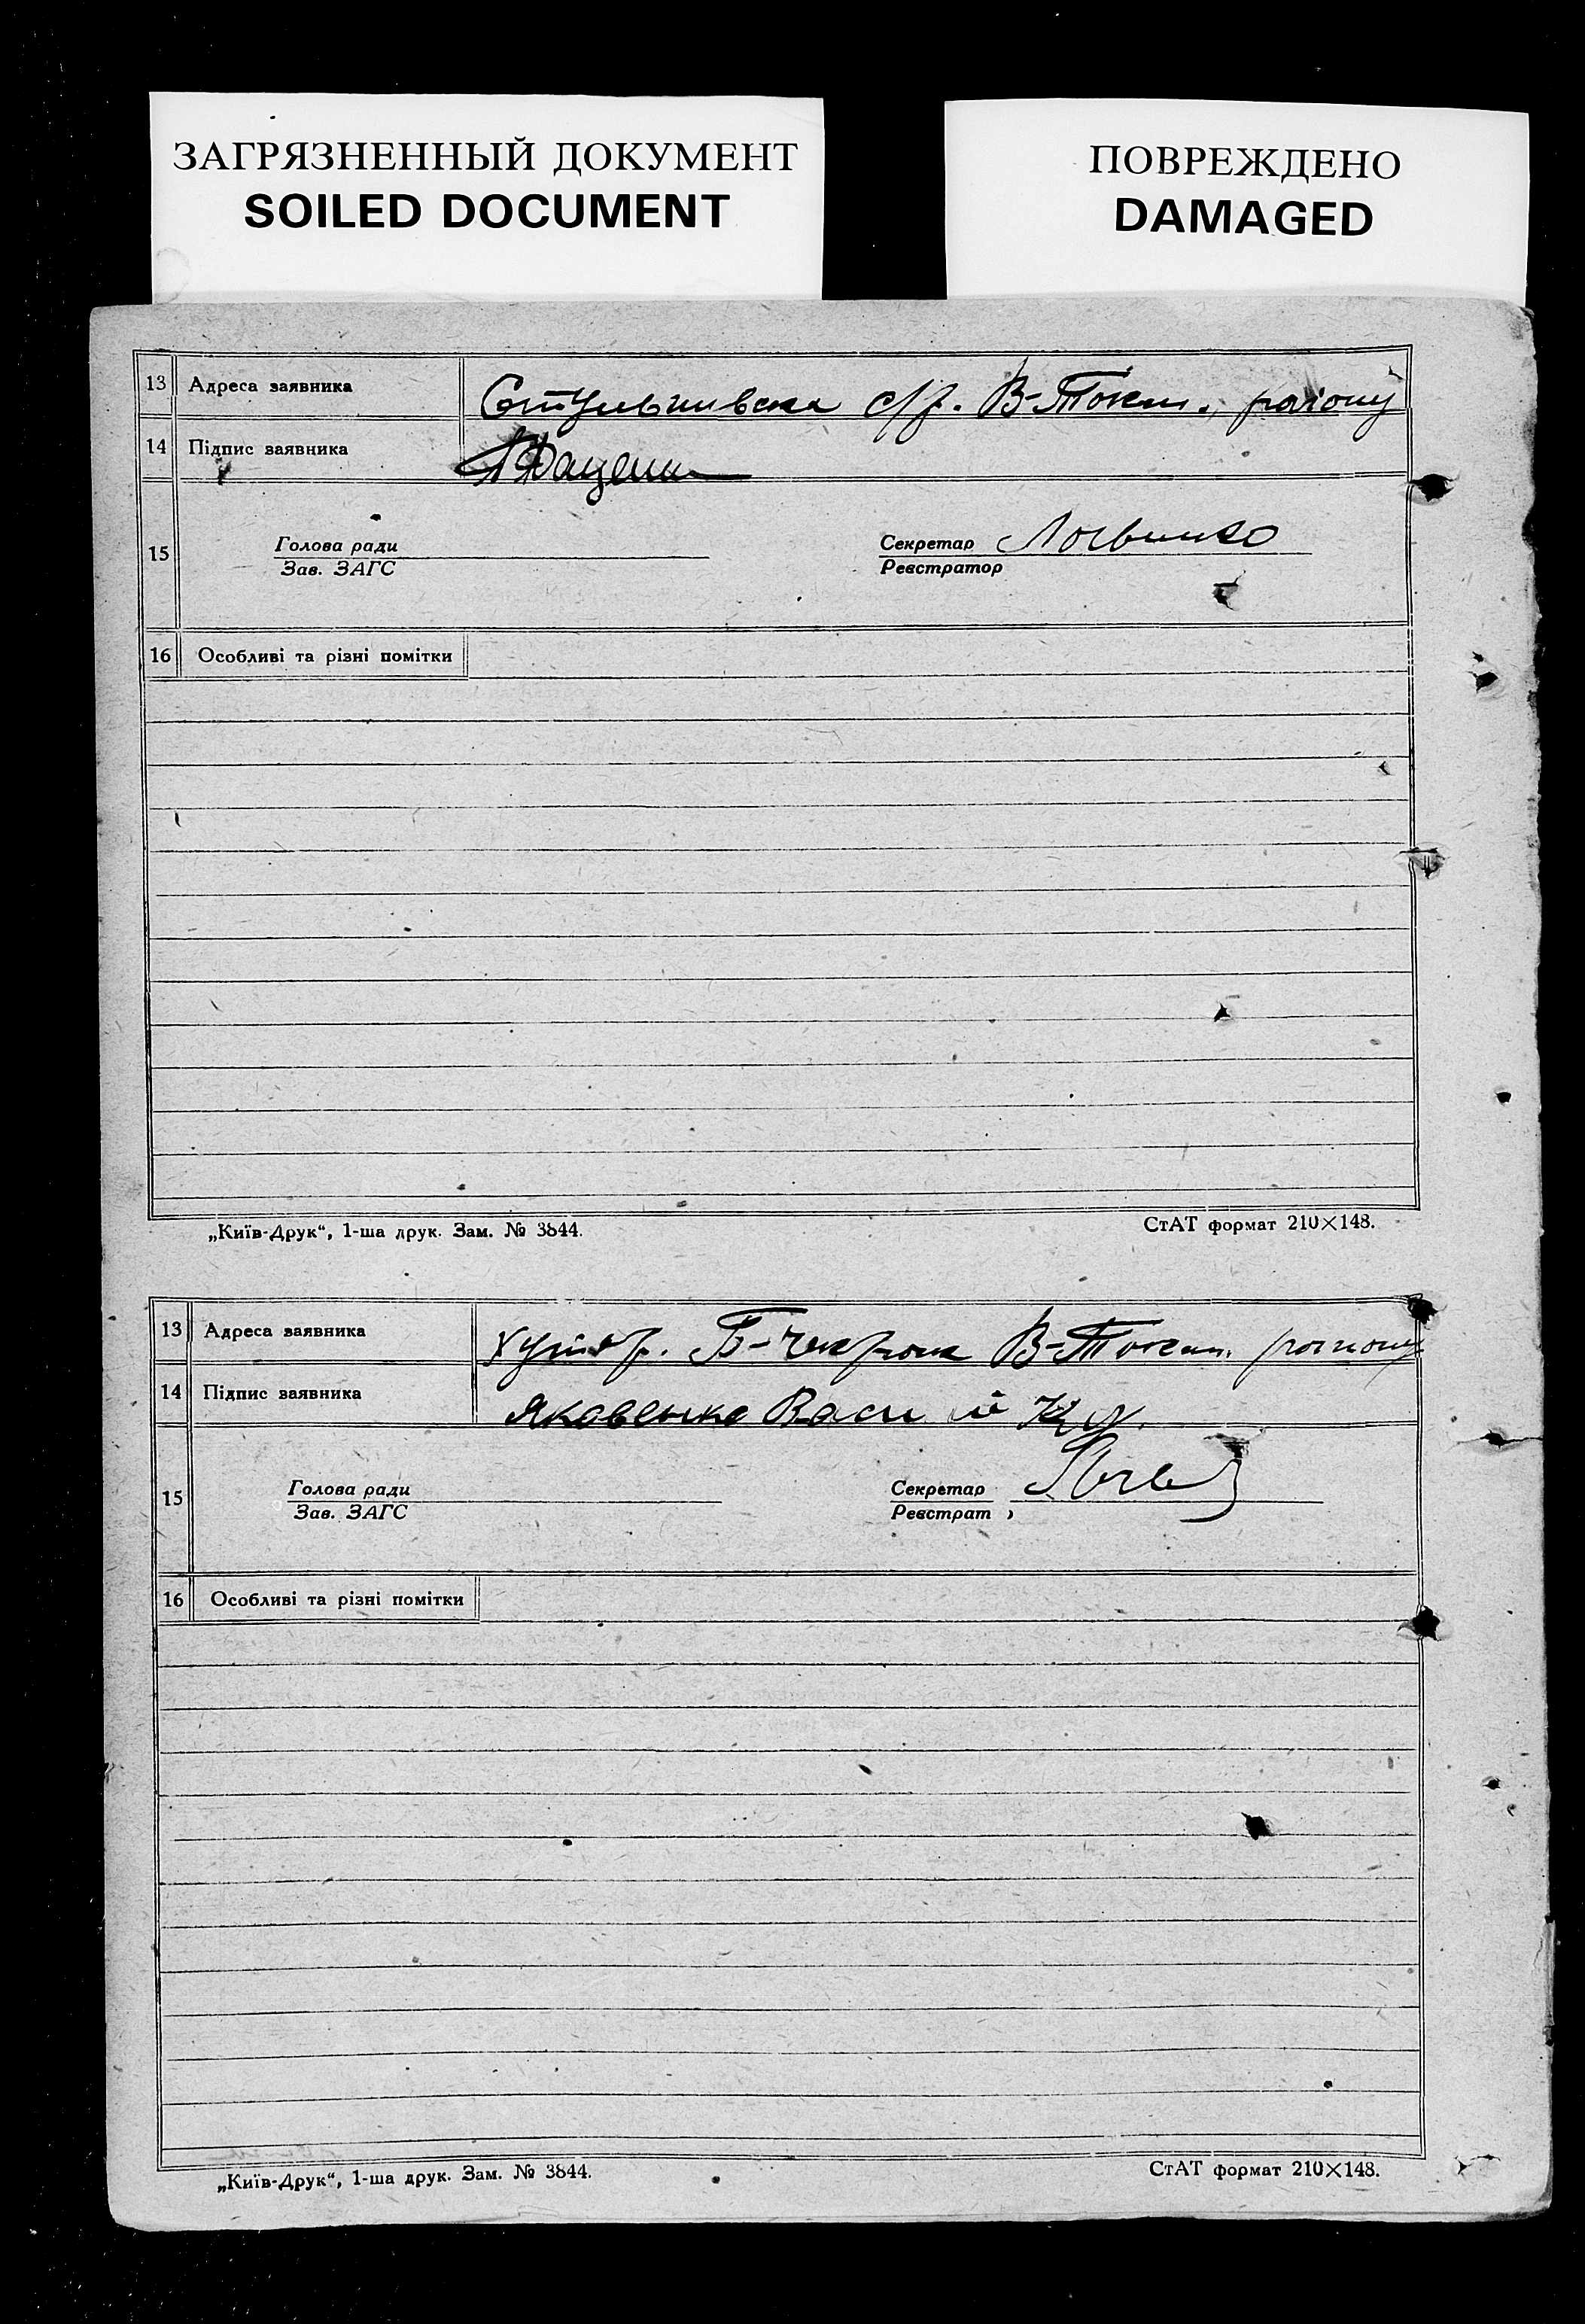 ЗАГРЯЗНЕННЫЙ ДОКУМЕНТ
SOILED DOCUMENT
ПОВРЕЖДЕНО
DAMAGED
13 Адреса заявника с/р. В-Токм. району
14 Підпис заявника
15 Голова ради Секретар
Зав. ЗАГС Реєстратор
16 Особливі та різні помітки
„Київ-Друк“, 1-ша друк. Зам. № 3844. СтАТ формат 210×148.
13 Адреса заявника хутор. В-Токм. району
14 Підпис заявника Яковенко Василій
15 Голова ради Секретар
Зав. ЗАГС Реєстрат
16 Особливі та різні помітки
„Київ-Друк“, 1-ша друк. Зам. № 3844. СтАТ формат 210×148.